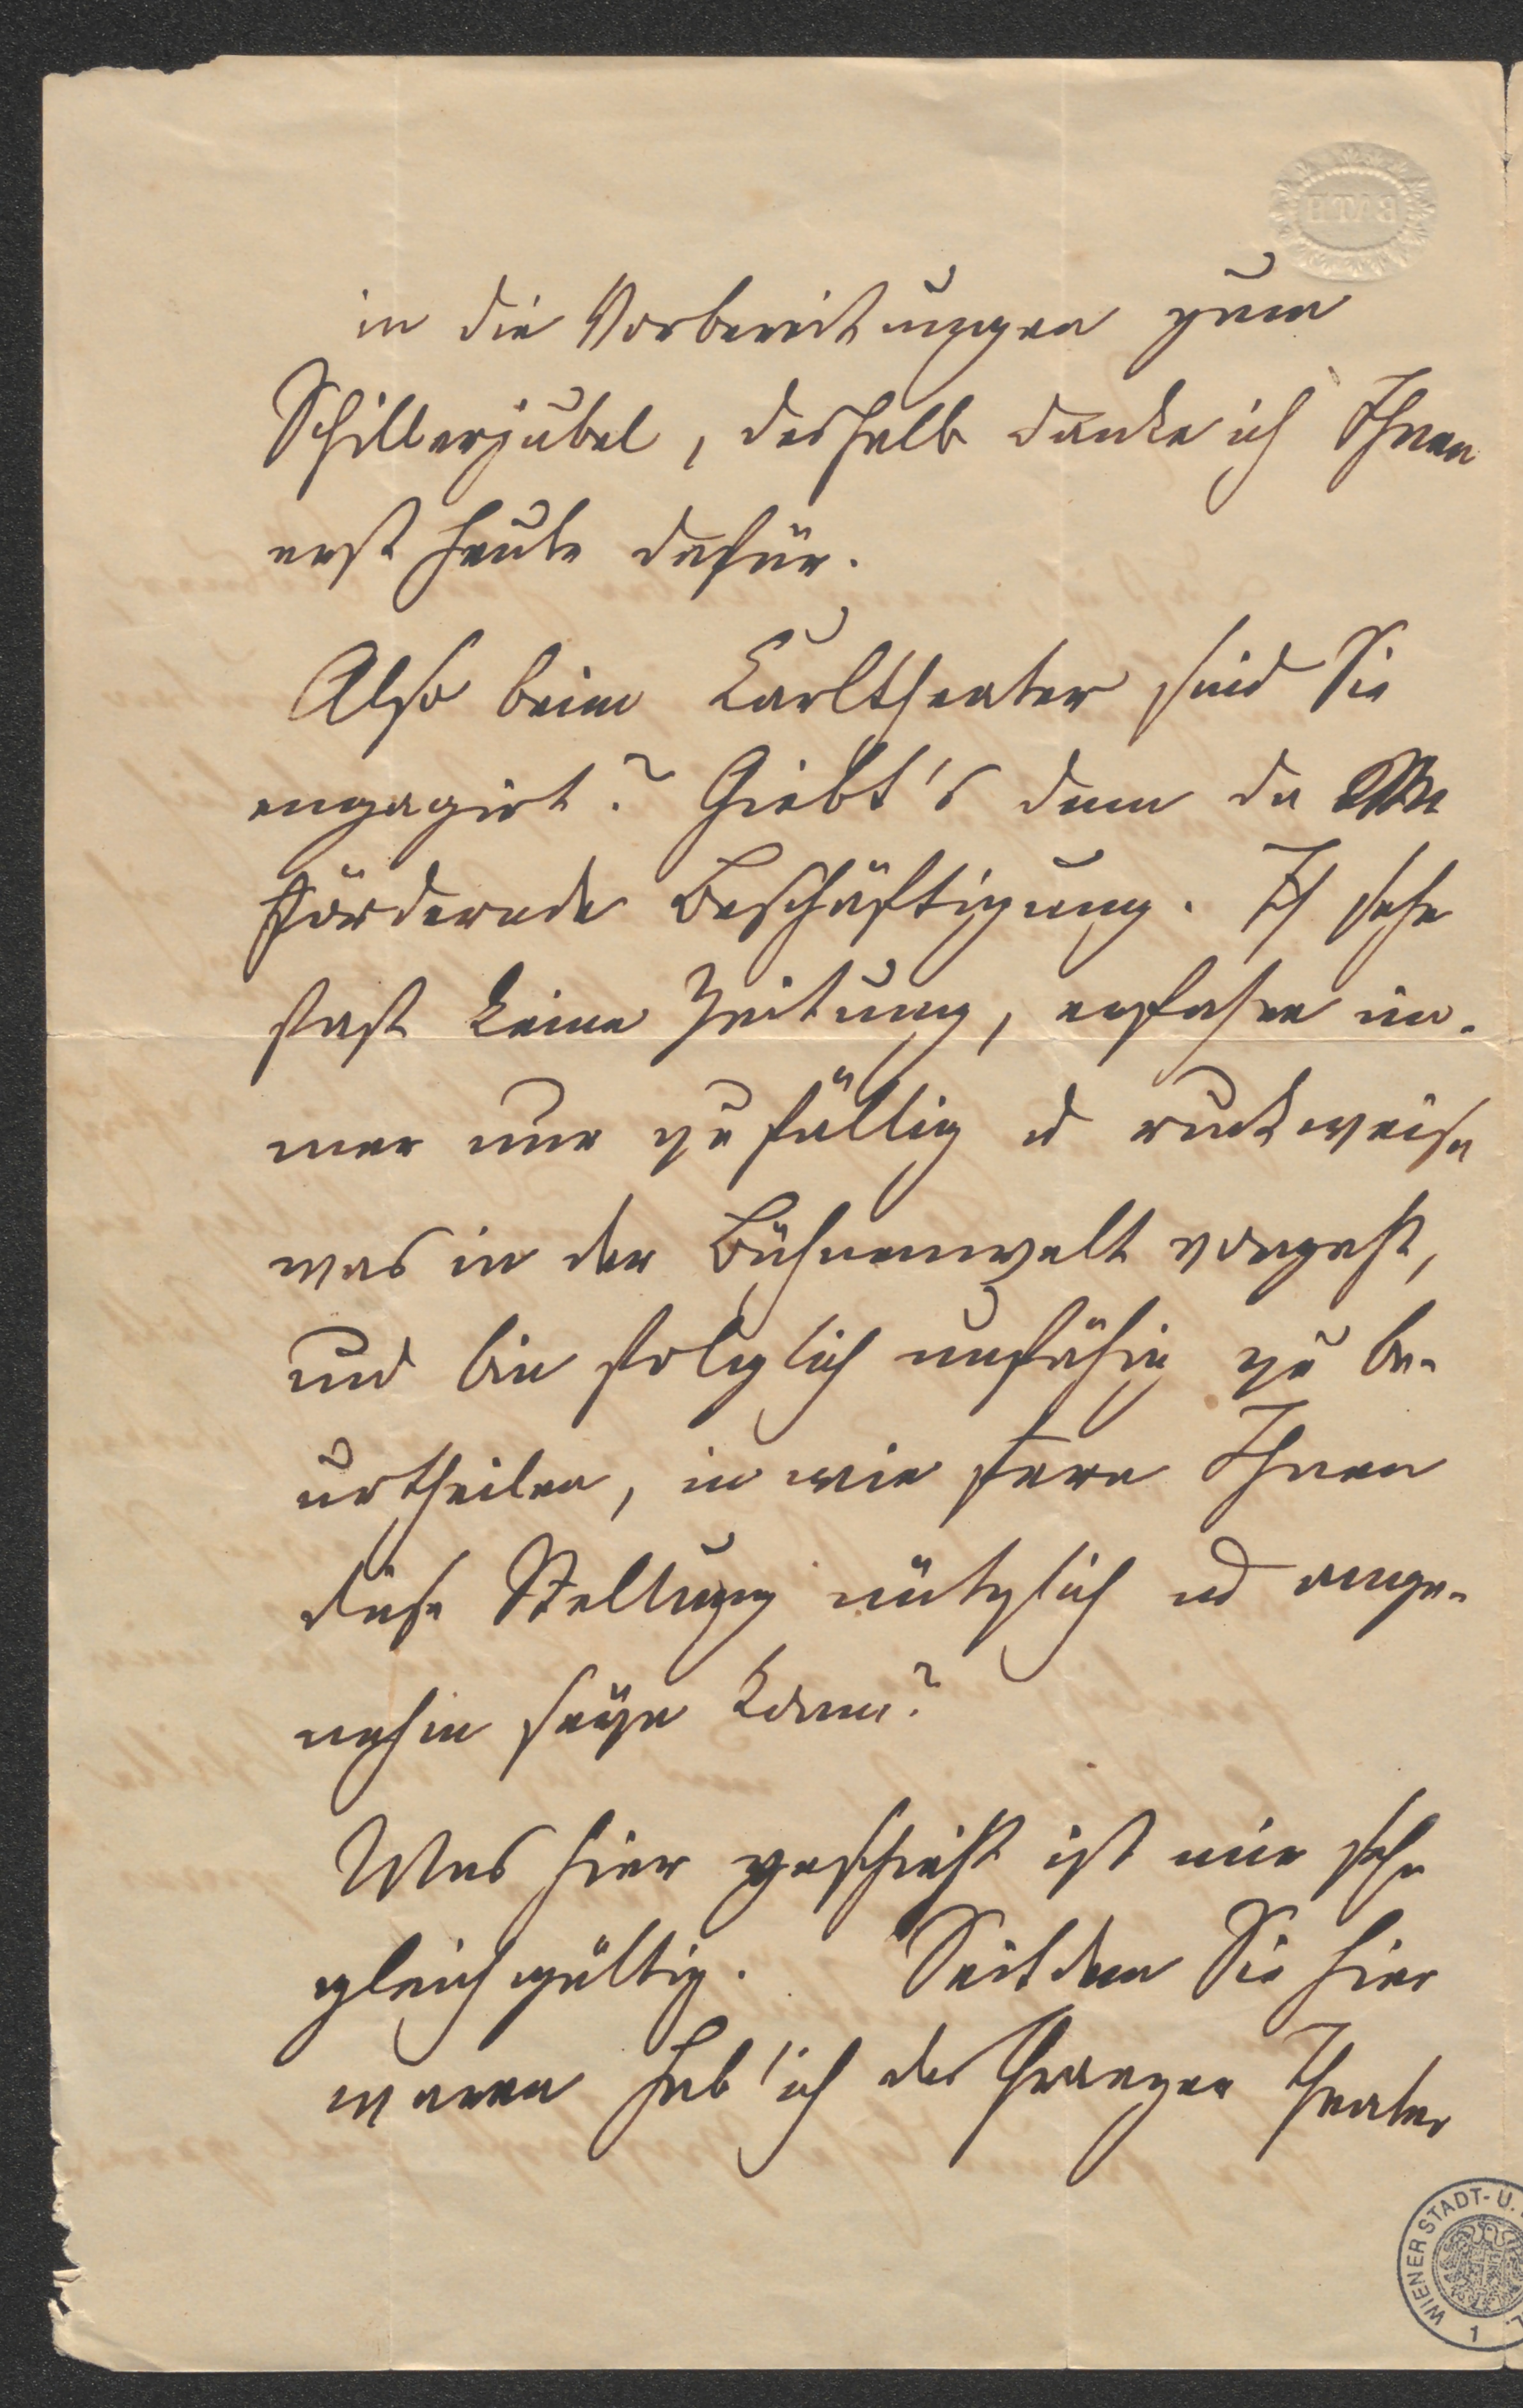 BATH
in die Vorbereitungen zum
Schillerjubel, deshalb danke ich Ihnen
erst heute dafür.
Also beim Carltheater sind Sie
engagirt? Giebt's denn da
fördernde Beschäftigung. Ich sehe
fast keine Zeitung, erfahre im-
mer nur zufällig u ruckweise
was in der Bühnenwelt vorgeht,
und bin folglich unfähig zu be-
urtheilen, in wie fern Ihnen
diese Stellung nützlich ud ange-
nehm seyn kann?
Was hier geschieht ist mir sehr
gleichgültig. Seitdem Sie hier
waren hab' ich das Theater
WIENER STADT- U.
1